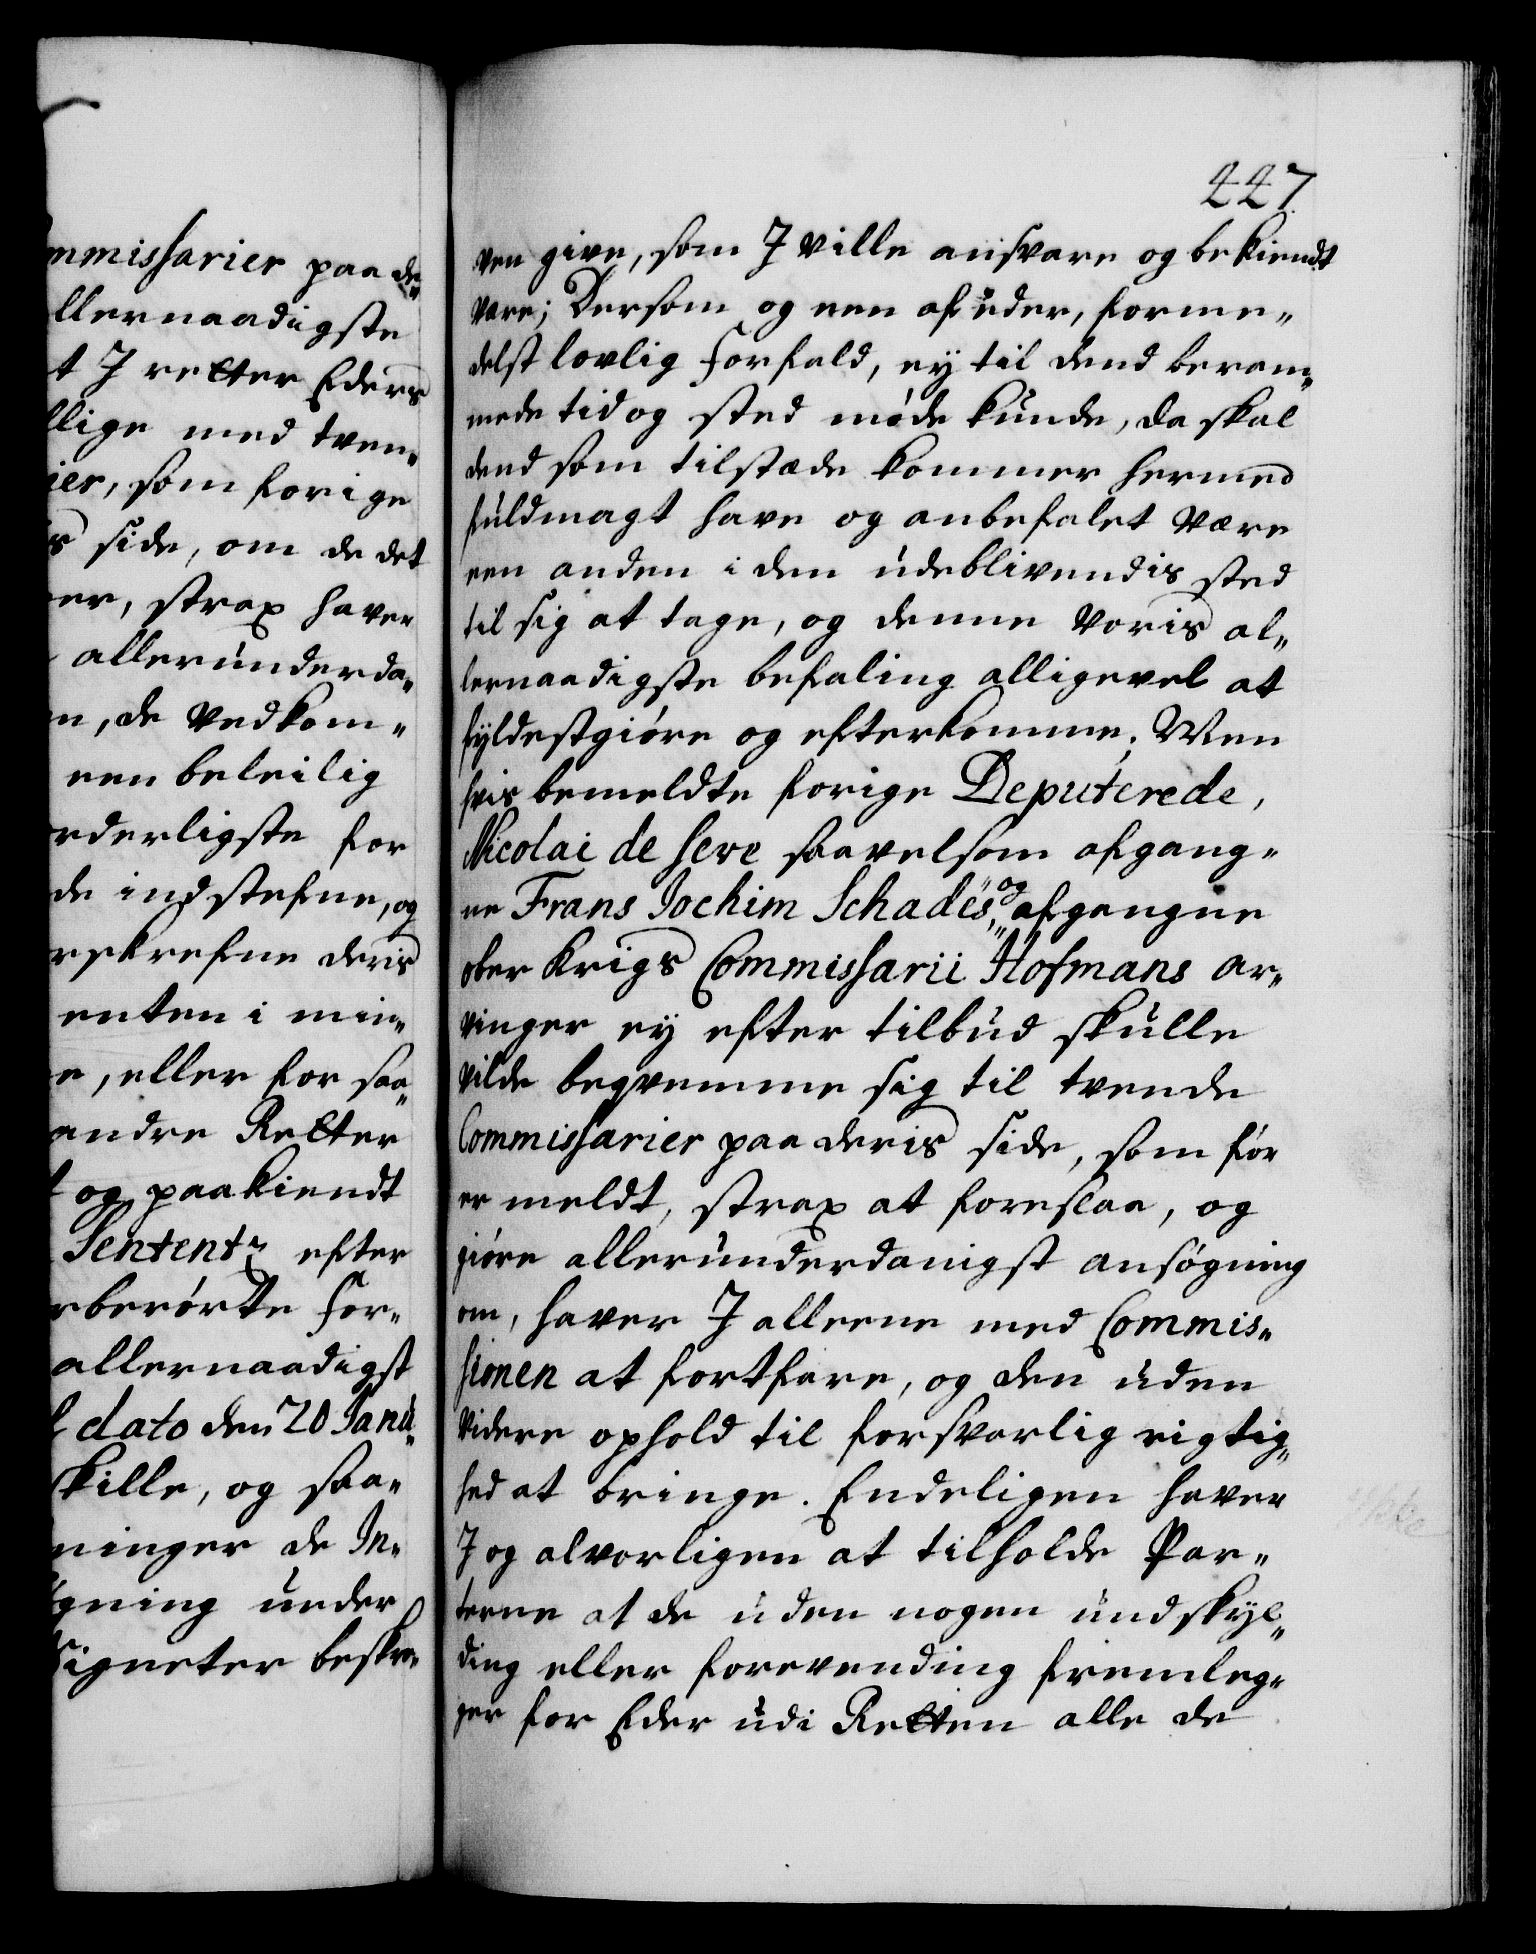 mmissarier paa de„
llernaadigste
t J retter Eders
llige med tven„
ier, som forige
s side, om de det
er, strax haver
allerunderda„
n, de vedkom„
een beleilig
rderligste for
de indstefne, og
rskrefne deris
enten i min„
e, eller for saa„
andre Retter
og paakiendt
Sententz efter
rberørte For„
allernaadigst
dato den 20 Janu„
skille, og saa„
ninger de In„
gning under
Signeter beskre„
447.
ven give, som J ville ansvare og bekiendt
være; Dersom og een af eder, forme„
delst lovlig Forfald, ey til dend beram„
mede tid og sted møde kunde, da skal
dend som tilstæde kommer hermed
fuldmagt have og anbefalet være
een anden i den udeblivendis sted
til sig at tage, og denne Voris al„
lernaadigste befaling alligevel at
fyldestgiøre og efterkomme; Men
hvis bemeldte forige Deputerede,
Nicolai de Seve saavelsom afgang„
ne Frans Jochim Schades, og afgangne
ober Krigs Commissarii Hofmans ar„
vinger ey efter tilbud skulle
vilde beqvemme sig til tvende
Commissarier paa deris side, som før
er meldt, strax at foreslaa, og
giøre allerunderdanigst ansøgning
om, haver J alleene med Commis„
sionen at fortfare, og den uden
videre ophold til forsvarlig rigtig„
hed at bringe. Endeligen haver
J og alvorligen at tilholde Par„
terne at de uden nogen undskyl„
ding eller forevending fremleg„
ger for Eder udi Retten alle de